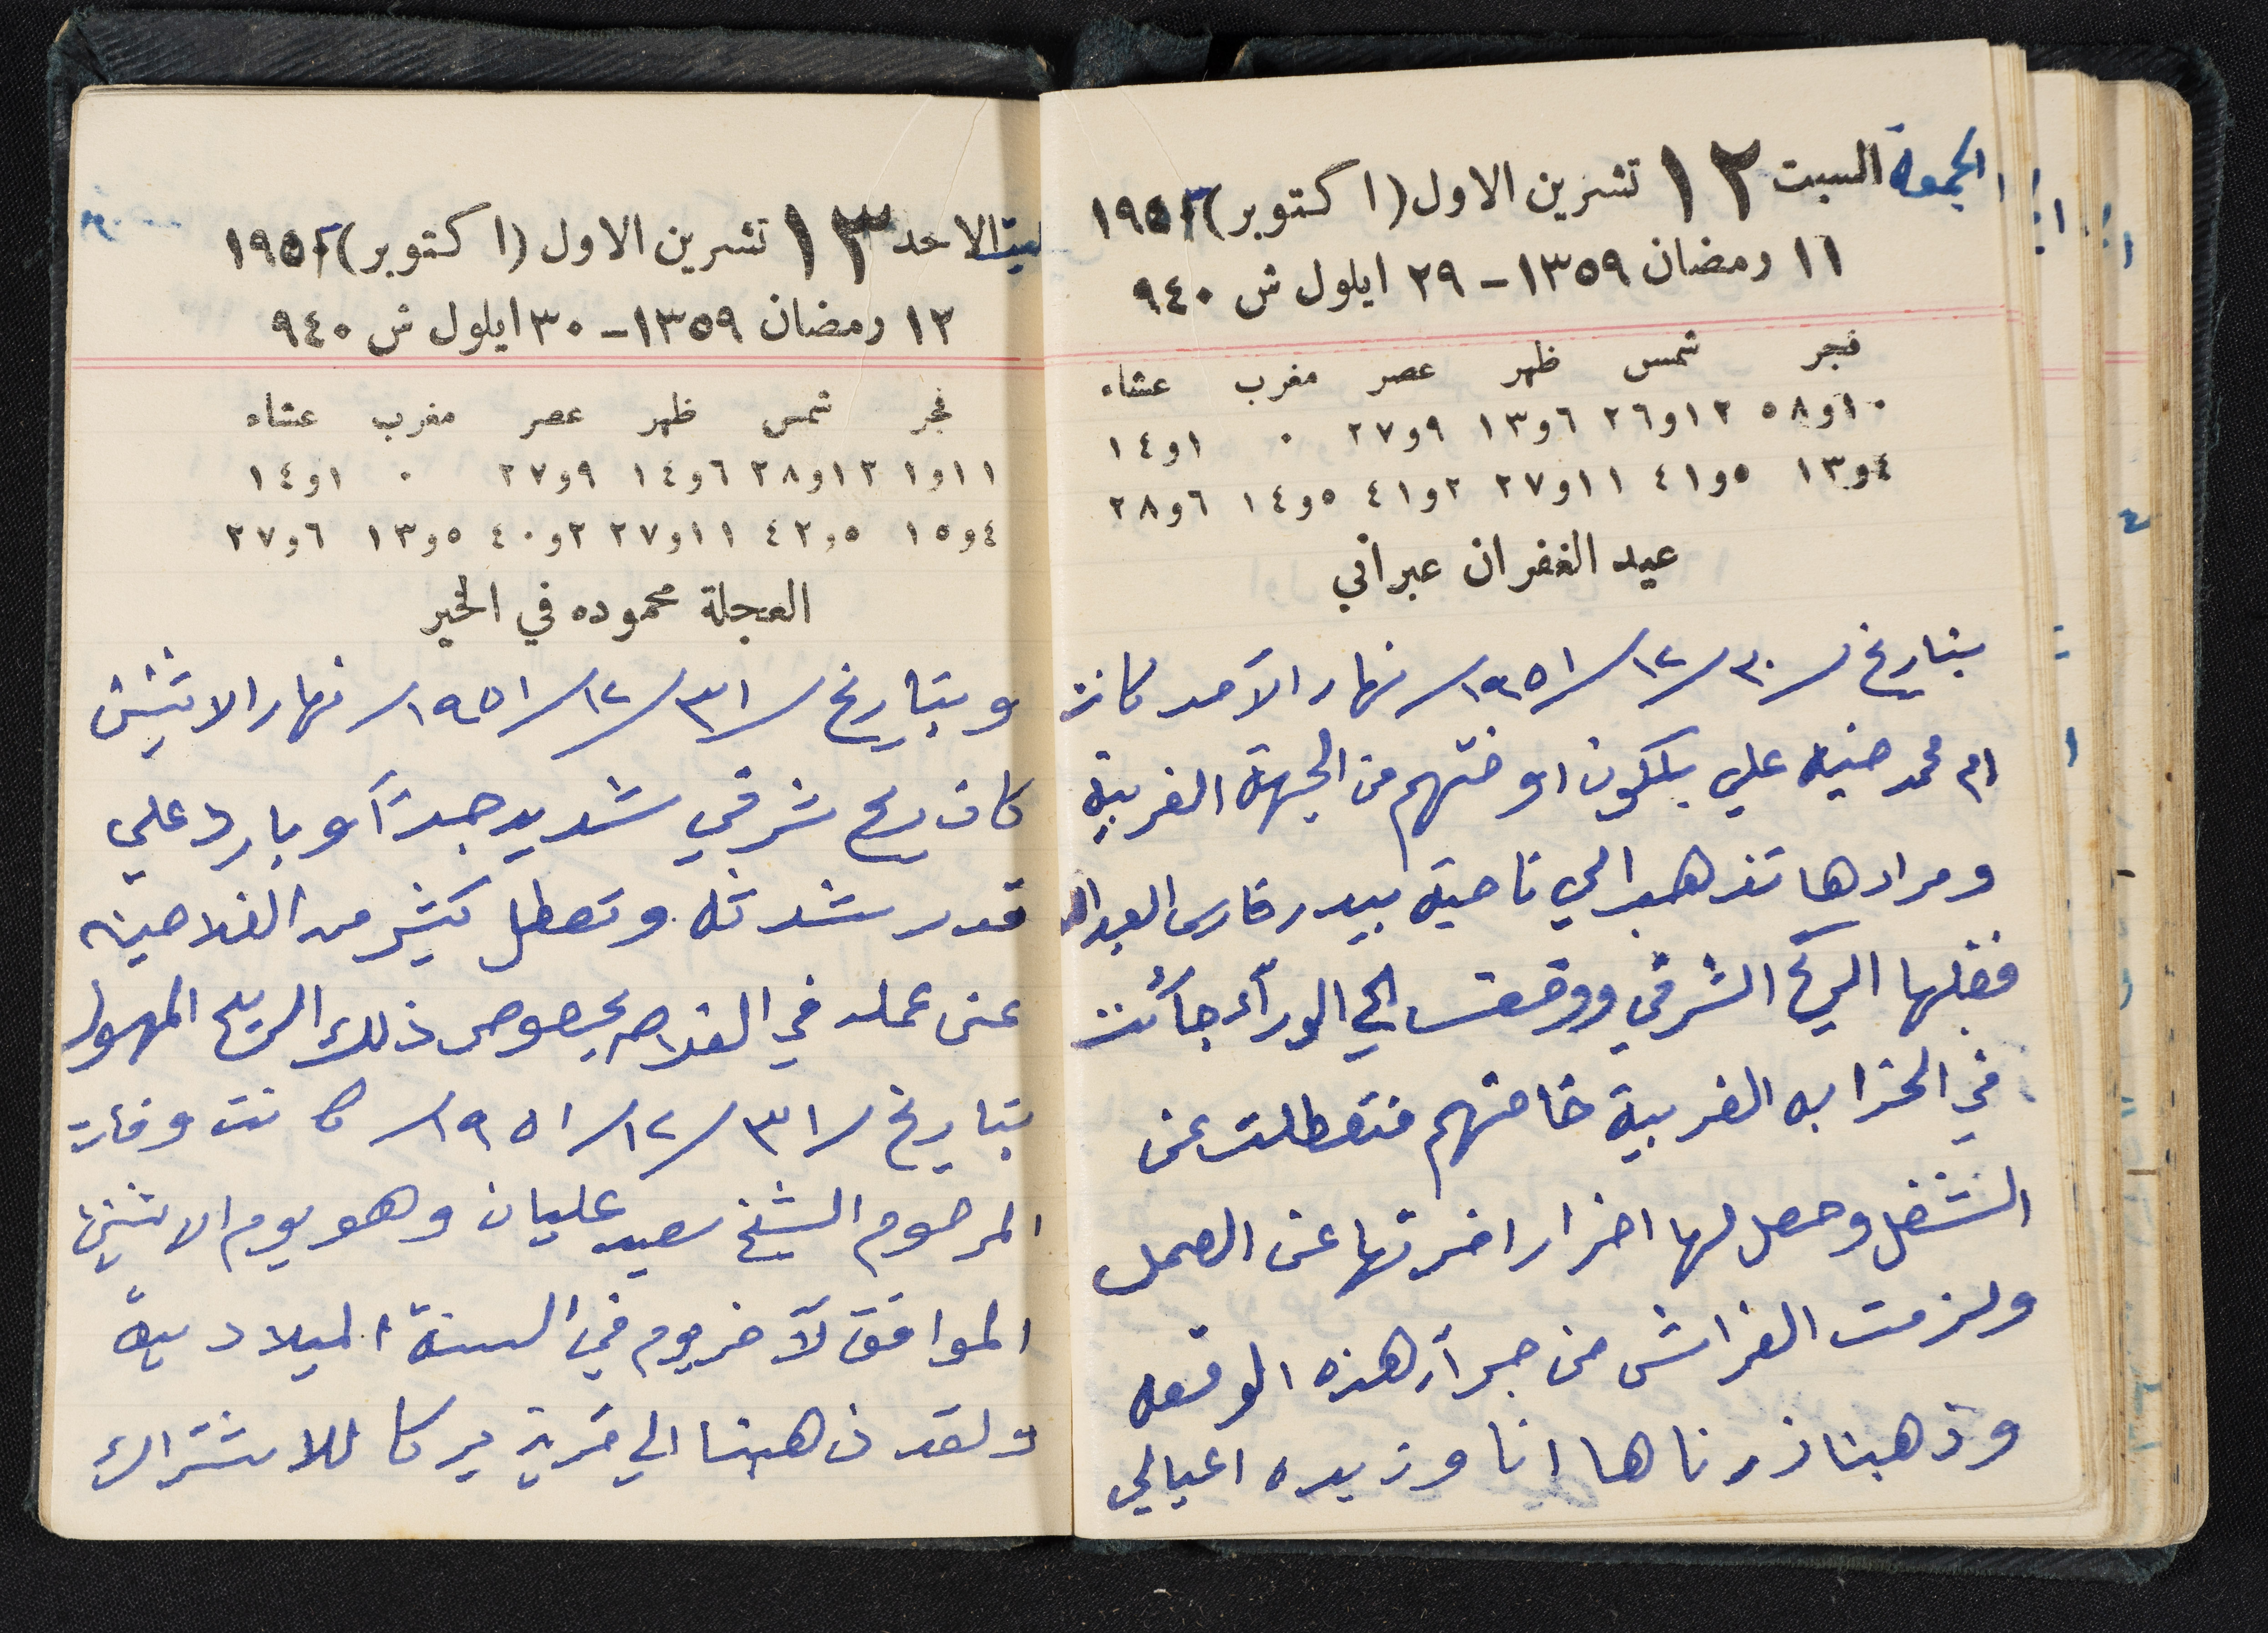 الجمعة السبت ١٢ تشرين الاول (اكتوبر) ١٩٥٢
١١ رمضان ١٣٥٩ - ٢٩ ايلول ش ٩٤٠
فجر شمس ظهر عصر مغرب عشاء
١٠و٥٨ ١٢و٢٦ ٦و١٣ ٩و٢٧ ٠ ١و١٤
٤و١٣ ٥و٤١ ١١و٢٧ ٢و٤١ ٥و١٤ ٦و٢٨
عيد الغفران عبراني
بتاريخ /٣٠/١٢/١٩٥١/ نهار الآحد كانت
ام محمد حنيه علي بلكون اوضتهم من الجهة الغربية
ومرادها تذهب الي ناحية بيدر فارس العبدال
فقلها الريح الشرقي ووقعت الي الورآء جآئت
في الخزابه الغربية خاصتهم فتعطلت عن
الشغل وحصل لها اضرار اخرتها عن العمل
ولزمت الفراش من جرآر هذه الوقعه
وذهبنا زرناها انا وزيده اعيالي
السبت الاحد ١٣ تشرين الاول (اكتوبر) ١٩٥٢
١٢ رمضان ١٣٥٩ - ٣٠ ايلول ش ٩٤٠
فجر شمس ظهر عصر مغرب عشاء
١١و١ ١٢و٢٨ ٦و١٤ ٩و٢٧ ٠ ١و١٤
٤و١٥ ٥و٤٢ ١١و٢٧ ٢و٤٠ ٥و١٣ ٦و٢٧
العجلة محموده في الخير
وبتاريخ /٣١/١٢/١٩٥١/ نهار الاثنين
كان ريح شرقي شديد جدآ وبارد علي
قدر شدته وتعطل كثير من الفلاحين
عن عمله في الفلاحه بخصوص ذلك الريح المهول
بتاريخ /٣١/١٢/١٩٥١/ كانت وفات
المرحوم الشيخ سعيد عليان وهو يوم الاثنين
الموافق لآخر يوم في السنة الميلاديةً
ولقد ذهبنا الي قرية يركا للاشتراك